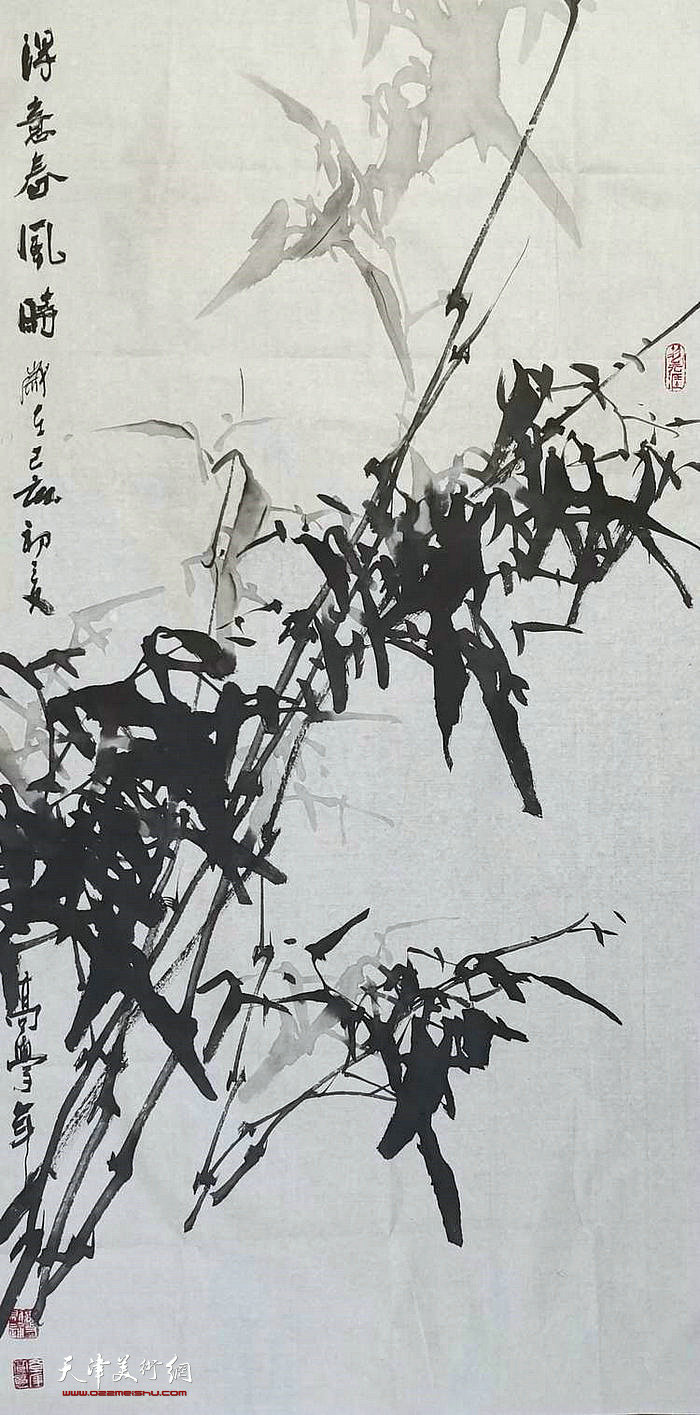 得意春风时
岁在己亥初夏
高学年
天津美術網
www.022meishu.com